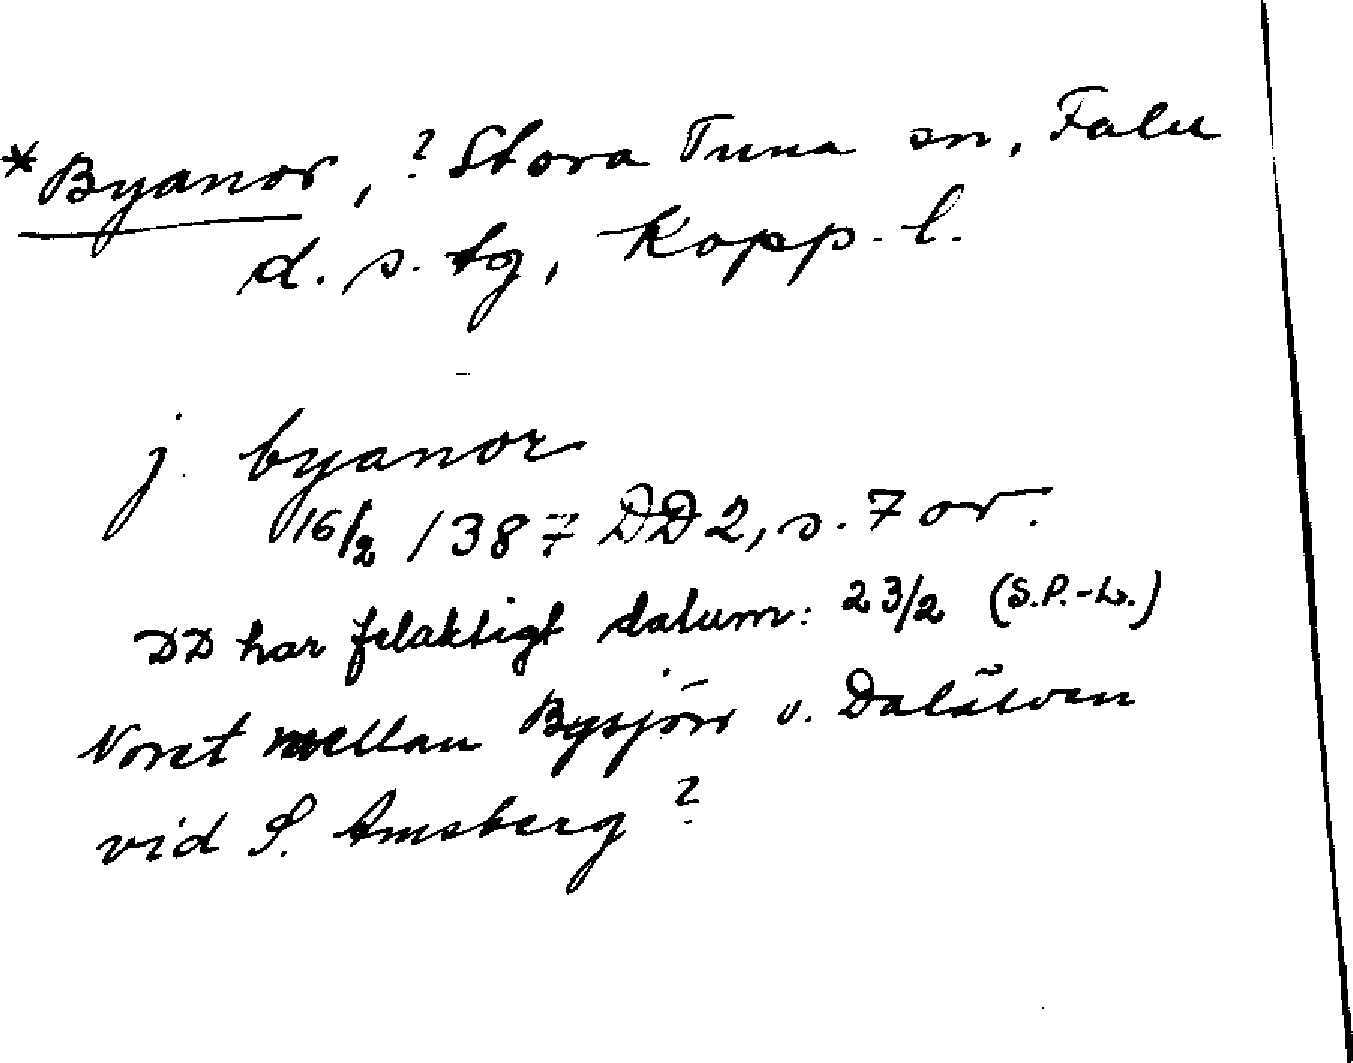 *Byanor, ? Stora Tuna sn, Falu
d. s. tg, Kopp. l.
j. byanor
16/2 1387 DD2, s. 7 or.
DD har felaktigt datum: 23/2 (S.P.-L.)
Noret mellan Bysjön o. Dalälven
vid S. Amsberg ?